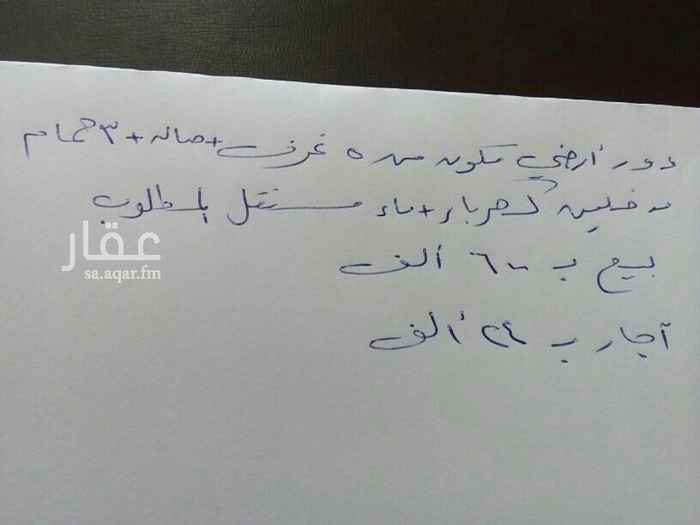 دور أرضي مكون من ٥ غرف + صاله + ٣ حمام
مدخلين كهرباء + ماء مستقل المطلوب
بيع ب ٦٠٠ ألف
آجار ب ٢٤ ألف
عقار
sa.aqar.fm